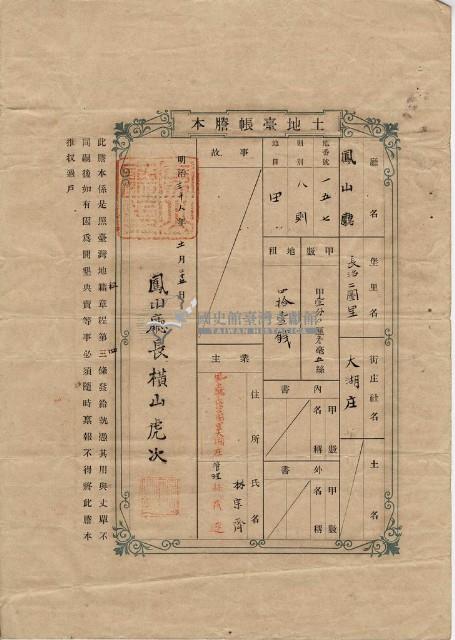 土地臺帳謄本
廳名
鳳山廳
堡里名
長治二圖里
街庄社名
大湖庄
土名
地番號
一五七
則別
八則
地目
田
甲數
地租
四拾壹錢
內書
甲數
名稱
外書
甲數
名稱
事故
業主
住所
氏名
管理
林宗齊
明治三十八年
鳳山廳長橫山虎次
此謄本係是照臺灣地籍章程第三條發給執憑其用與丈單不
同嗣後如有因爲開墾典賣等事必須隨時稟報不得將此謄本
推收過戶
國史館臺灣文獻館
TAIWAN HISTORICA